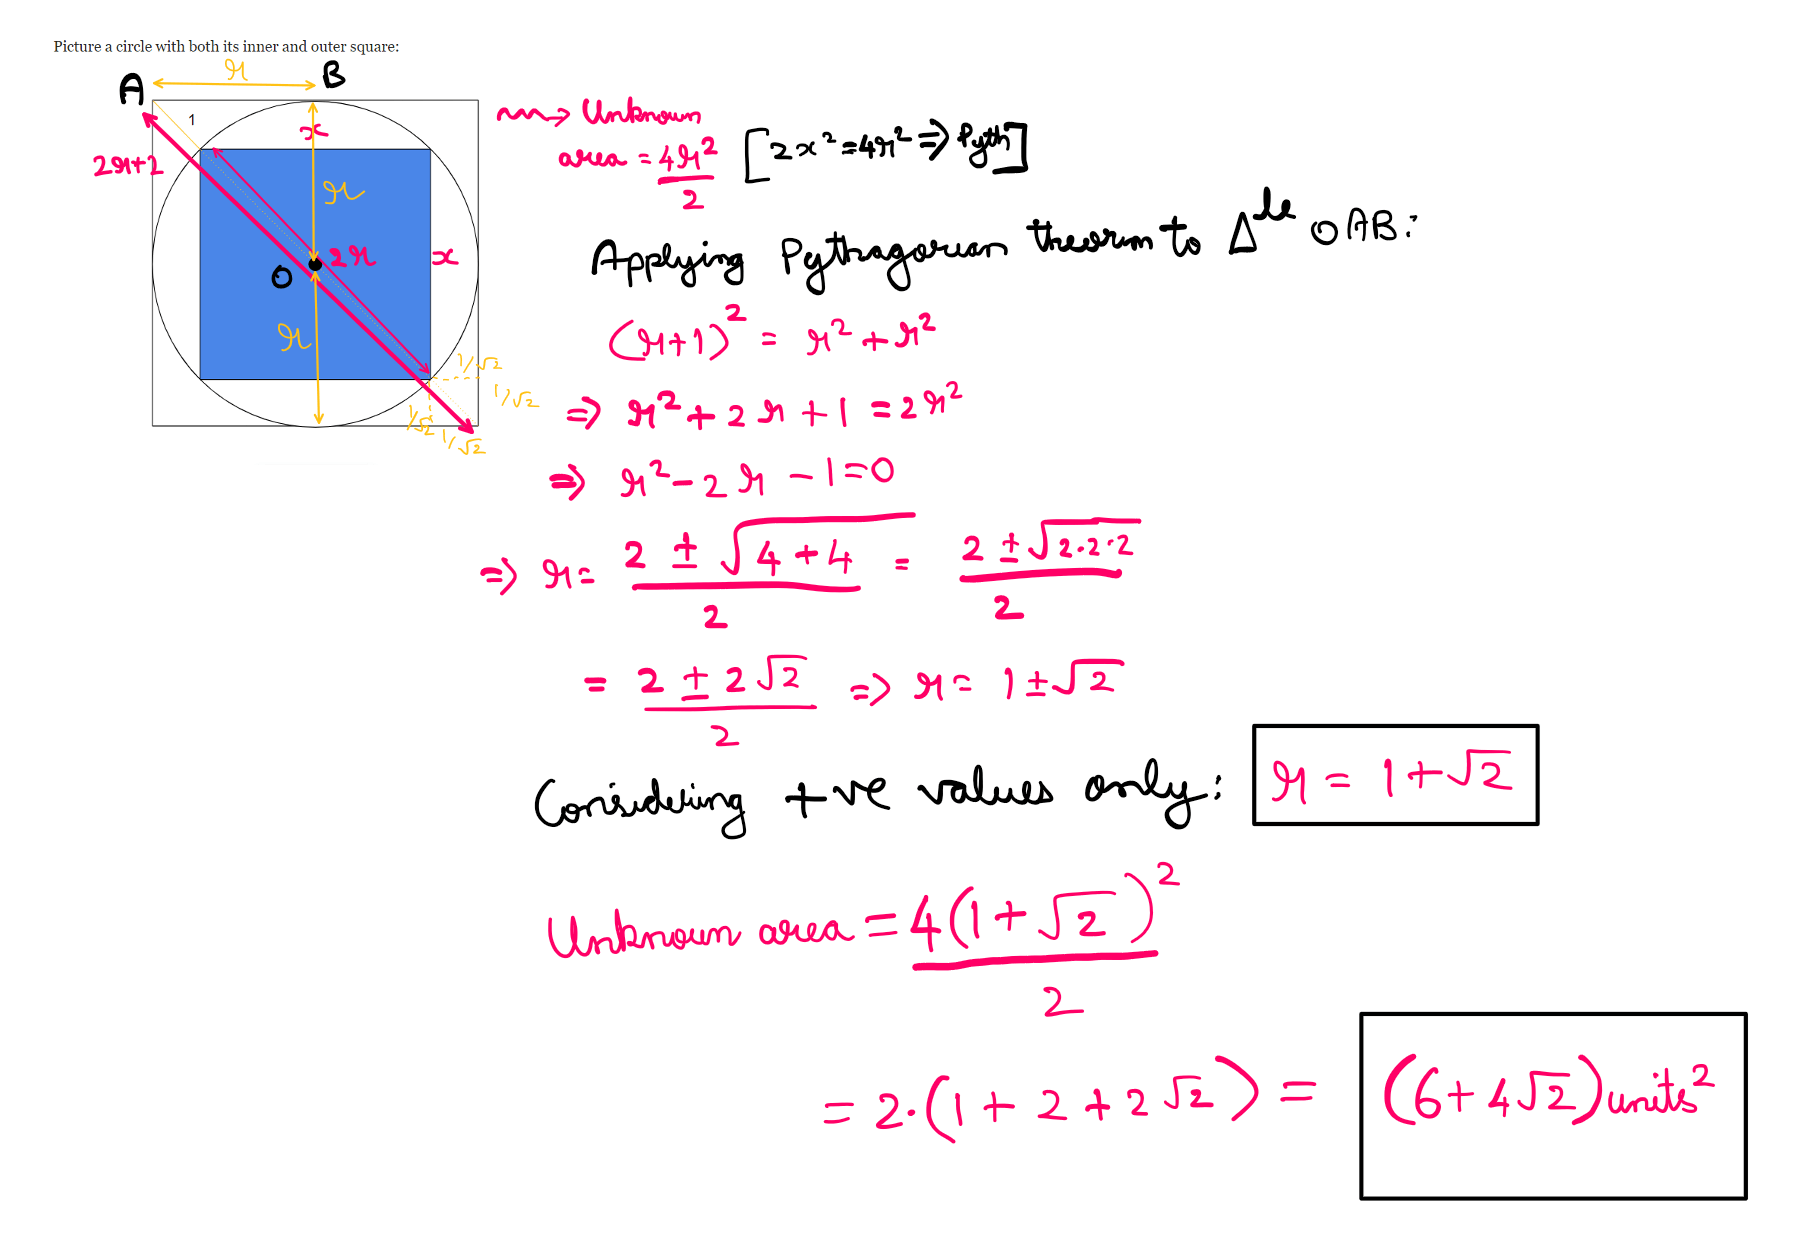 Picture a circle with both its inner and outer square:
A r B
1
x
2r+2
r
O 2r x
r
1/√2
1/√2
1/√2
1/√2
→ Unknown
area = 4r²/2 [2x² = 4r² ⇒ Pyth]
Applying Pythagorian theorem to Δle OAB:
(r+1)² = r² + r²
⇒ r² + 2r + 1 = 2r²
⇒ r² - 2r - 1 = 0
⇒ r = (2 ± √(4+4))/2 = (2 ± √(2·2·2))/2
= (2 ± 2√2)/2 ⇒ r = 1 ± √2
Considering +ve values only: r = 1 + √2
Unknown area = 4(1 + √2)²/2
= 2·(1 + 2 + 2√2) = (6 + 4√2) units²